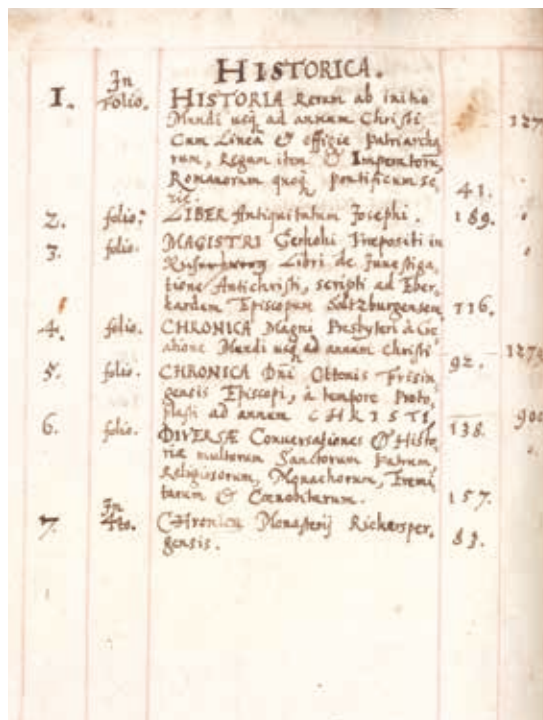 HISTORICA.
I. In Folio. HISTORIA Rerum ab initio
Mundi usq ad annum Christi 127
Cum Linea & effigie Patriarcha
rum, Regum item & Imperatorũ,
Romanorum quoq Pontificum se
rie. 41.
2. folio. LIBER Antiquitatum Josephi. 189.
3. folio. MAGISTRI Gerhohi Præpositi in
Libri de Inuestiga
tione Antichristi, scripti ad Eber
hardum Episcopum Saltzburgensem 116.
4. folio. CHRONICA Magni Presbyteri à Cre
atione Mundi usq ad annum Christi 92. 1279
5. folio. CHRONICA Dñi Ottonis Frisin
gensis Episcopi, à tempore Proto
plasti ad annum CHRISTI 138. 900
6. folio. DIVERSÆ Conversationes & Histo
riæ multorum Sanctorum Patrum,
Religiosorum, Monachorum, Eremi
tarum & Cœnobitarum. 157.
7. In 4to. CHronica Monasterij Richersper
gensis. 83.